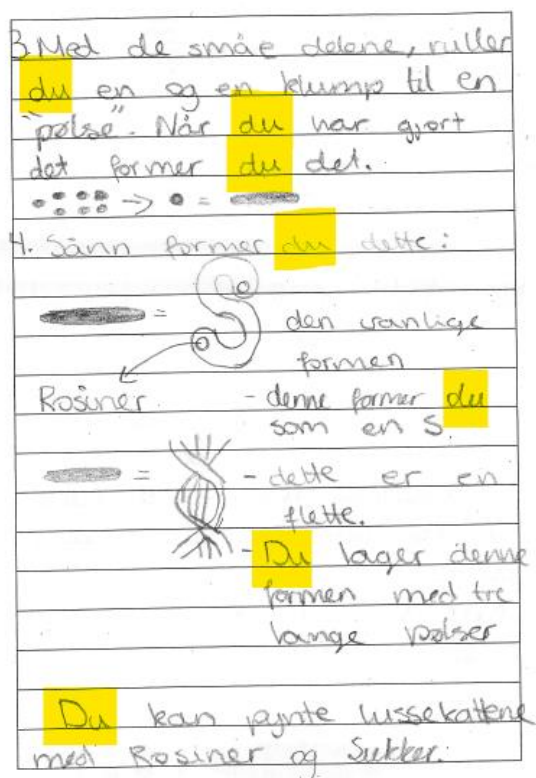 3. Med de småe delene, ruller
du en og en klump til en
"pølse". Når du har gjort
det former du det.
4. Sånn former du dette:
den vanlige
formen
Rosiner - denne former du
som en S
- dette er en
flette.
- Du lager denne
formen med tre
lange pølser
Du kan pynte lussekattene
med Rosiner og Sukker.